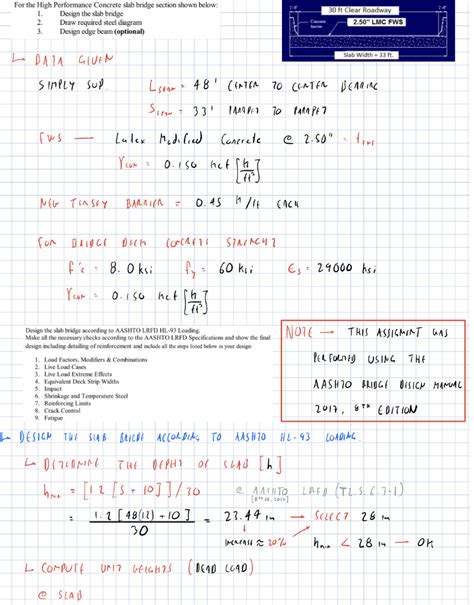 For the High Performance Concrete slab bridge section shown below:
1. Design the slab bridge
2. Draw required steel diagram
3. Design edge beam (optional)
30 ft Clear Roadway
2.50" LMC FWS
Slab Width = 33 ft.
DATA GIVEN
SIMPLY SUP. L SPAN = 48' CENTER TO CENTER BEARING
= 33' PARAPET TO PARAPET
FWS — Latex Modified Concrete @ 2.50" =
γcon = 0.150 kcf [k/ft³]
NEW JERSEY BARRIER = 0.45 k/ft EACH
FOR BRIDGE DECK CONCRETE STRENGHT
f'c = 8.0 ksi fy = 60 ksi Es = 29000 ksi
γcon = 0.150 kcf [k/ft³]
Design the slab bridge according to AASHTO LRFD HL-93 Loading.
Make all the necessary checks according to the AASHTO LRFD Specifications and show the final
design including detailing of reinforcement and include all the steps listed below in your design:
1. Load Factors, Modifiers & Combinations
2. Live Load Cases
3. Live Load Extreme Effects
4. Equivalent Deck Strip Widths
5. Impact
6. Shrinkage and Temperature Steel
7. Reinforcing Limits
8. Crack Control
9. Fatigue
NOTE → THIS ASSIGMENT WAS
PERFORMED USING THE
AASHTO BRIDGE DESIGN MANUAL
2017, 8TH EDITION
DESIGN THE SLAB BRIGDE ACCORDING TO AASHTO HL-93 LOADING.
DETERMINE THE DEPHT OF SLAB [h]
hmin = [1.2 [S + 10]] / 30 @ AASHTO LRFD (T2.5.2.6.3-1)
= 1.2 [48(12) + 10] / 30 = 23.44 in → SELECT 28 in
INCREASE ≈ 20% hmin < 28 in → OK
COMPUTE UNIT WEIGHTS (DEAD LOAD)
@ SLAB